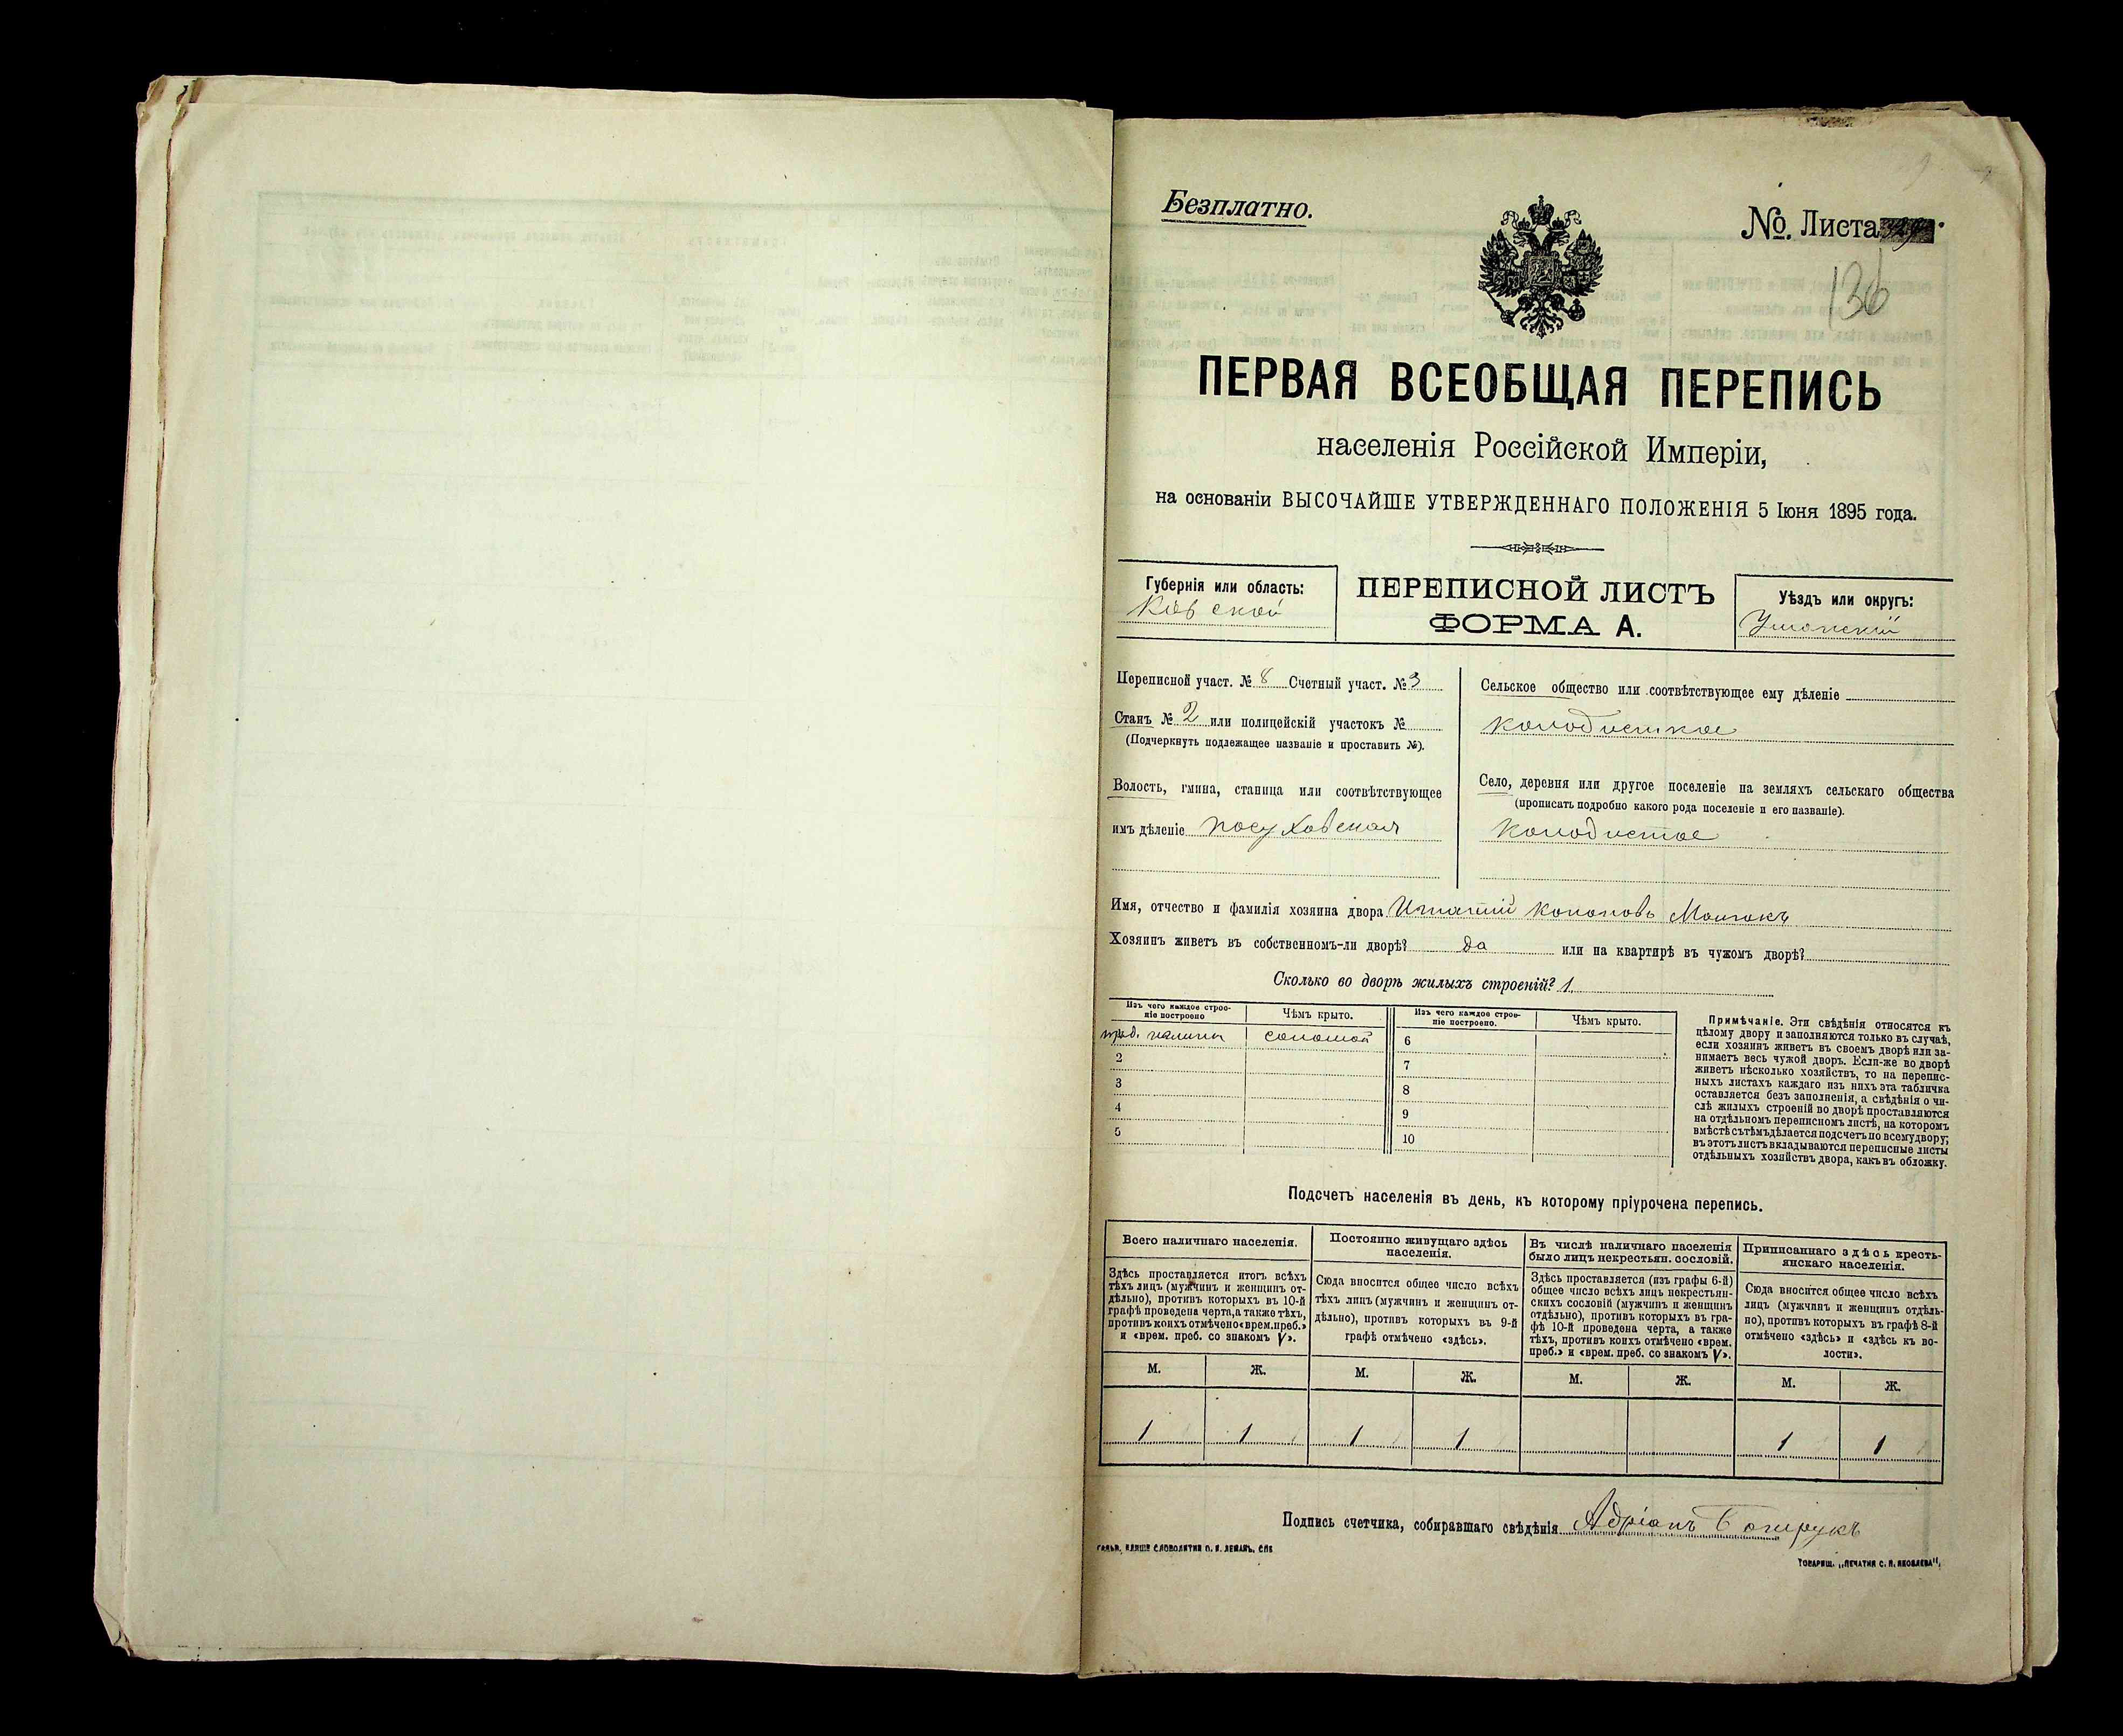 Безплатно.
№ Листа
136
ПЕРВАЯ ВСЕОБЩАЯ ПЕРЕПИСЬ
населенія Россійской Имперіи,
на основаніи ВЫСОЧАЙШЕ УТВЕРЖДЕННАГО ПОЛОЖЕНІЯ 5 Іюня 1895 года.
Губернія или область:
Кіевской
ПЕРЕПИСНОЙ ЛИСТЪ
ФОРМА А.
Уѣздъ или округъ:
Уманскій
Переписной участ. № 8 Счетный участ. № 3
Станъ № 2 или полицейскій участокъ №
(Подчеркнуть подлежащее названіе и проставить №).
Волость, гмина, станица или соотвѣтствующее
имъ дѣленіе Посуховская
Сельское общество или соотвѣтствующее ему дѣленіе
Колодисткое
Село, деревня или другое поселеніе на земляхъ сельскаго общества
(прописать подробно какого рода поселеніе и его названіе).
Колодистое
Имя, отчество и фамилія хозяина двора Игнатій Кононовъ
Хозяинъ живетъ въ собственномъ-ли дворѣ? да или на квартирѣ въ чужомъ дворѣ?
Сколько во дворѣ жилыхъ строеній? 1
Изъ чего каждое строе-
ніе построено
Чѣмъ крыто.
Изъ чего каждое строе-
ніе построено.
Чѣмъ крыто.
соломой
2
3
4
5
6
7
8
9
10
Примѣчаніе. Эти свѣдѣнія относятся къ
цѣлому двору и заполняются только въ случаѣ,
если хозяинъ живетъ въ своемъ дворѣ или за-
нимаетъ весь чужой дворъ. Если-же во дворѣ
живетъ нѣсколько хозяйствъ, то на перепис-
ныхъ листахъ каждаго изъ нихъ эта табличка
оставляется безъ заполненія, а свѣдѣнія о чи-
слѣ жилыхъ строеній во дворѣ проставляются
на отдѣльномъ переписномъ листѣ, на которомъ
вмѣстѣ съ тѣмъ дѣлается подсчетъ по всему двору;
въ этотъ листъ вкладываются переписные листы
отдѣльныхъ хозяйствъ двора, какъ въ обложку.
Подсчетъ населенія въ день, къ которому пріурочена перепись.
Всего наличнаго населенія.
Здѣсь проставляется итогъ всѣхъ
тѣхъ лицъ (мужчинъ и женщинъ от-
дѣльно), противъ которыхъ въ 10-й
графѣ проведена черта, а также тѣхъ,
противъ коихъ отмѣчено «врем. преб.»
и «врем. преб. со знакомъ V».
Постоянно живущаго здѣсь
населенія.
Сюда вносится общее число всѣхъ
тѣхъ лицъ (мужчинъ и женщинъ от-
дѣльно), противъ которыхъ въ 9-й
графѣ отмѣчено «здѣсь».
Въ числѣ наличнаго населенія
было лицъ некрестьян. сословій.
Здѣсь проставляется (изъ графы 6-й)
общее число всѣхъ лицъ некрестьян-
скихъ сословій (мужчинъ и женщинъ
отдѣльно), противъ которыхъ въ гра-
фѣ 10-й проведена черта, а также
тѣхъ, противъ коихъ отмѣчено «врем.
преб.» и «врем. преб. со знакомъ V».
Приписаннаго здѣсь кресть-
янскаго населенія.
Сюда вносится общее число всѣхъ
лицъ (мужчинъ и женщинъ отдѣль-
но), противъ которыхъ въ графѣ 8-й
отмѣчено «здѣсь» и «здѣсь къ во-
лости».
М. Ж. М. Ж. М. Ж. М. Ж.
1 1 1 1 1 1
Подпись счетчика, собиравшаго свѣдѣнія Адріанъ
ГАЛЬВ. КЛИШЕ СЛОВОЛИТНИ О. И. ЛЕМАНЪ, СПБ
ТОВАРИЩ. „ПЕЧАТНЯ С. П. ЯКОВЛЕВА".